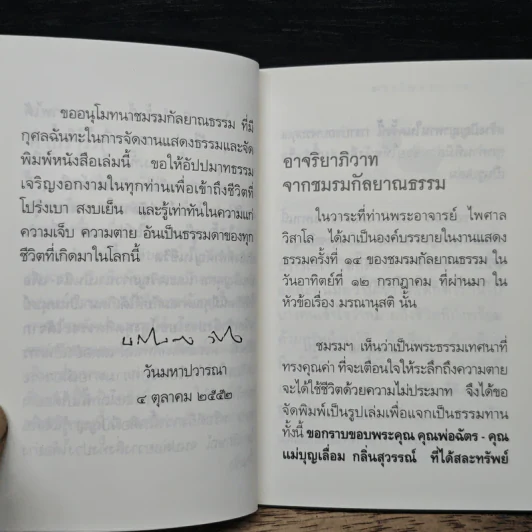 ขออนุโมทนาชมรมกัลยาณธรรม ที่มี
กุศลฉันทะในการจัดงานแสดงธรรมและจัด
พิมพ์หนังสือเล่มนี้ ขอให้อัปปมาทธรรม
เจริญงอกงามในทุกท่านเพื่อเข้าถึงชีวิตที่
โปร่งเบา สงบเย็น และรู้เท่าทันในความแก่
ความเจ็บ ความตาย อันเป็นธรรมดาของทุก
ชีวิตที่เกิดมาในโลกนี้
วันมหาปวารณา
๔ ตุลาคม ๒๕๕๒
อาจริยาภิวาท
จากชมรมกัลยาณธรรม
ในวาระที่ท่านพระอาจารย์ ไพศาล
วิสาโล ได้มาเป็นองค์บรรยายในงานแสดง
ธรรมครั้งที่ ๑๔ ของชมรมกัลยาณธรรม ใน
วันอาทิตย์ที่ ๑๒ กรกฎาคม ที่ผ่านมา ใน
หัวข้อเรื่อง มรณานุสติ นั้น
ชมรมฯ เห็นว่าเป็นพระธรรมเทศนาที่
ทรงคุณค่า ที่จะเตือนใจให้ระลึกถึงความตาย
จะได้ใช้ชีวิตด้วยความไม่ประมาท จึงได้ขอ
จัดพิมพ์เป็นรูปเล่มเพื่อแจกเป็นธรรมทาน
ทั้งนี้ ขอกราบขอบพระคุณ คุณพ่อฉัตร - คุณ
แม่บุญเลื่อม กลิ่นสุวรรณ์ ที่ได้สละทรัพย์